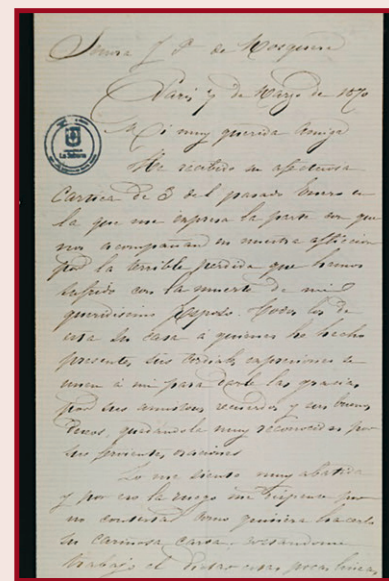 Señora J. P. de Mosquera
Paris 7 de Marzo de 1870
Mi muy querida amiga
He recibido su afectuosa
Cartica de 3 del pasado Enero en
la que me expresa la parte con que
nos acompañan en nuestra aflicción
por la terrible perdida que hemos
sufrido con la muerte de mi
queridisimo Esposo. Todos los de
esta su casa á quienes he hecho
presentes sus cordiales expresiones se
unen á mi para darle las gracias
por sus amistosos recuerdos y sus buenos
deseos, quedándole muy reconocidos por
sus oraciones
Yo me siento muy abatida
y por eso la ruego me dispense que
no conteste como quisiera hacerlo
su cariñosa carta
trabajo el estas pocas lineas
La Sabana